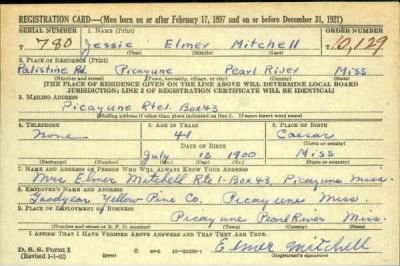 REGISTRATION CARD—(Men born on or after February 17, 1897 and on or before December 31, 1921)
SERIAL NUMBER 1. NAME (Print) ORDER NUMBER
V 780 Jessie Elmer Mitchell 10,129
(First) (Middle) (Last)
2. PLACE OF RESIDENCE (Print)
Palistine Rd. Picayune Pearl River Miss
(Number and street) (Town, township, village, or city) (County) (State)
[THE PLACE OF RESIDENCE GIVEN ON THE LINE ABOVE WILL DETERMINE LOCAL BOARD
JURISDICTION; LINE 2 OF REGISTRATION CERTIFICATE WILL BE IDENTICAL]
3. MAILING ADDRESS
Picayune Rte1. Box 43
[Mailing address if other than place indicated on line 2. If same insert word same]
4. TELEPHONE 5. AGE IN YEARS 6. PLACE OF BIRTH
None 41 Caesar
DATE OF BIRTH (Town or county)
July 13 1900 Miss
(Exchange) (Number) (Mo.) (Day) (Yr.) (State or country)
7. NAME AND ADDRESS OF PERSON WHO WILL ALWAYS KNOW YOUR ADDRESS
Mrs Elmer Mitchell Rte 1 Box 43, Picayune Miss.
8. EMPLOYER'S NAME AND ADDRESS
Goodyear Yellow Pine Co. Picayune Miss.
9. PLACE OF EMPLOYMENT OR BUSINESS
Picayune Pearl River Miss.
(Number and street or R. F. D. number) (Town) (County) (State)
I AFFIRM THAT I HAVE VERIFIED ABOVE ANSWERS AND THAT THEY ARE TRUE.
D. S. S. Form 1 Elmer Mitchell
(Revised 1-1-42) (Registrant's signature)